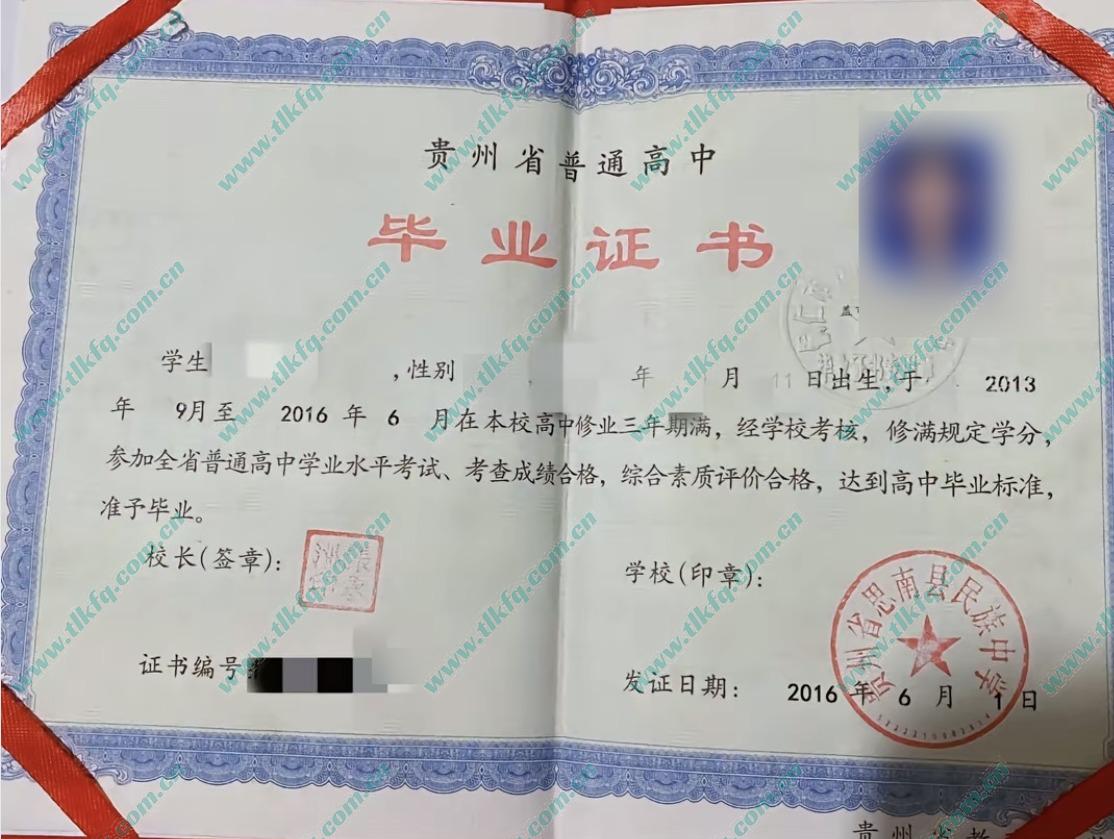 贵州省普通高中
毕业证书
学生 ,性别 年 月 11 日出生,于 2013
年 9月至 2016 年 6 月在本校高中修业三年期满，经学校考核，修满规定学分，
参加全省普通高中学业水平考试、考查成绩合格，综合素质评价合格，达到高中毕业标准，
准予毕业。
校长(签章):
学校(印章):
贵州省思南县民族中学
证书编号
发证日期: 2016 年 6 月 1 日
www.tlkfq.com.cn